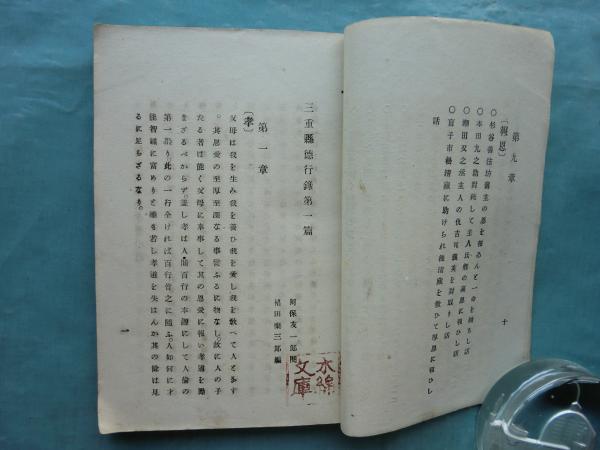 第九章
〔報恩〕
○杉谷善住坊舊主の恩を報ゐんと一命を捨ちし話
○本田九之助討死して主人氏郷の高恩に報ひし話
○瀨田又之丞主人の仇古可儀英を討取りし話
○盲子市善清藏に助けられ後清藏を救ひて厚恩に報ひし
話
十
三重縣德行錄第一篇
阿保友一郎閲
植田樂三郎編
第一章
〔孝〕
父母は我を生み我を養ひ我を愛し我を敎へて人と爲す
。其恩愛の至厚至深なる事従ふるに物なし。故に人の子
たる者は能く父母に奉事して其の恩愛に報い孝道を勤
まざるべからず。蓋し孝は人間百行の本源にして人倫の
第一なり此の一行全ければ百行皆之に隨ふ。人如何に才
能智識に富めりと雖も若し孝道を失はんか其の餘は見
るに足らざるなり。
一
水線
文庫